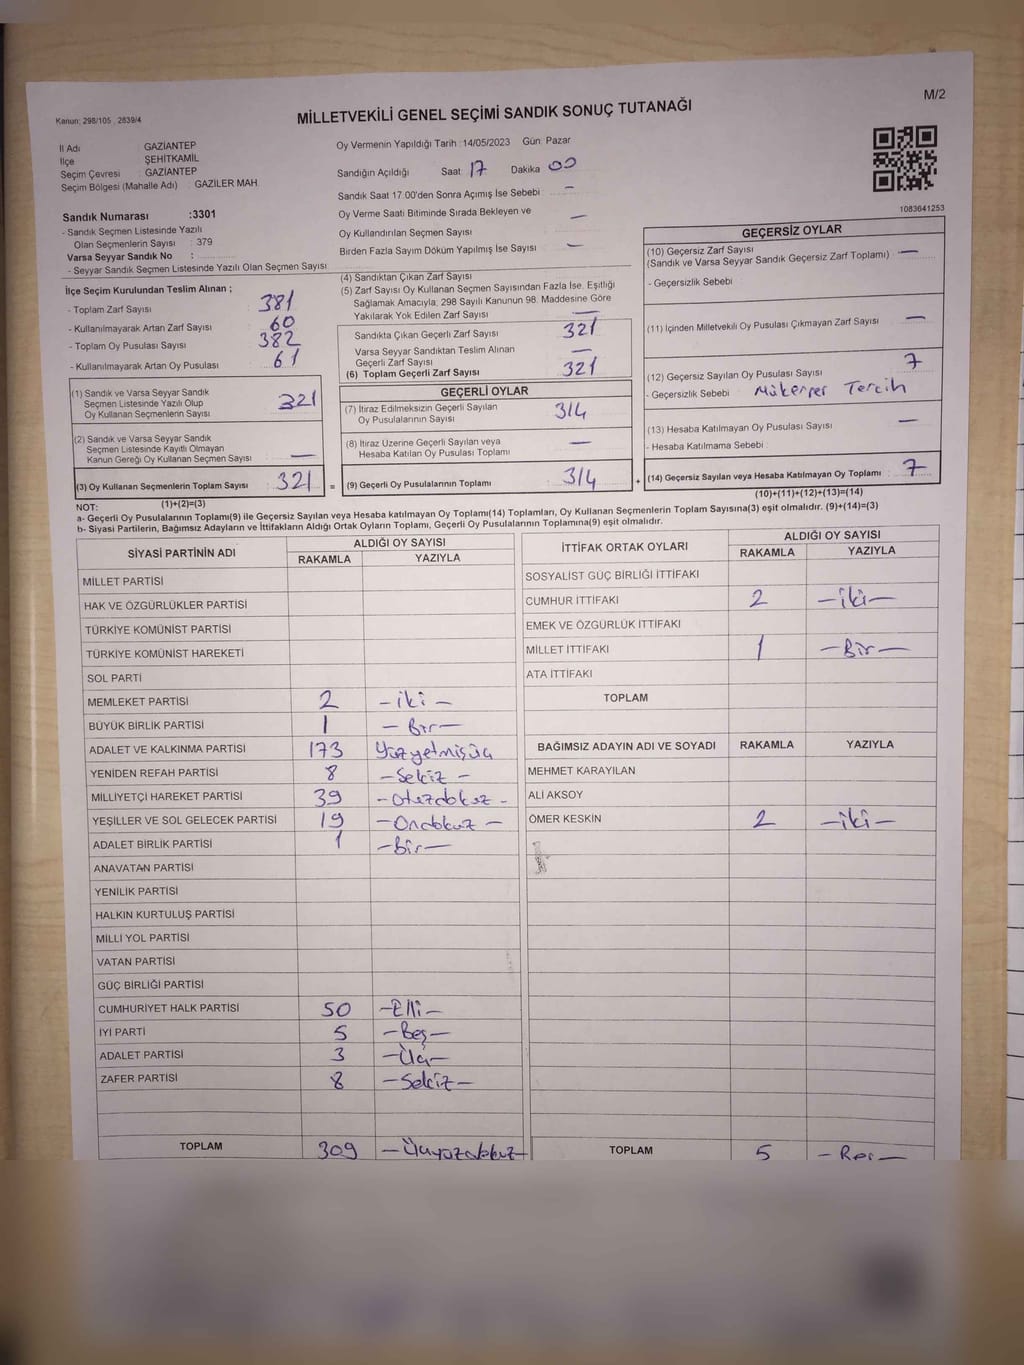 M/2
Kanun: 298/105 , 2839/4
MİLLETVEKİLİ GENEL SEÇİMİ SANDIK SONUÇ TUTANAĞI
İl Adı : GAZİANTEP
İlçe : ŞEHİTKAMİL
Seçim Çevresi : GAZİANTEP
Seçim Bölgesi (Mahalle Adı) : GAZİLER MAH.
Sandık Numarası :3301
- Sandık Seçmen Listesinde Yazılı
Olan Seçmenlerin Sayısı : 379
Varsa Seyyar Sandık No :
- Seyyar Sandık Seçmen Listesinde Yazılı Olan Seçmen Sayısı
Oy Vermenin Yapıldığı Tarih : 14/05/2023 Gün: Pazar
Sandığın Açıldığı Saat 17 Dakika 00
Sandık Saat 17.00'den Sonra Açımış İse Sebebi : —
Oy Verme Saati Bitiminde Sırada Bekleyen ve
Oy Kullandırılan Seçmen Sayısı —
Birden Fazla Sayım Döküm Yapılmış İse Sayısı : —
1083641253
İlçe Seçim Kurulundan Teslim Alınan ;
- Toplam Zarf Sayısı 381
- Kullanılmayarak Artan Zarf Sayısı 60
- Toplam Oy Pusulası Sayısı 382
- Kullanılmayarak Artan Oy Pusulası 61
(1) Sandık ve Varsa Seyyar Sandık
Seçmen Listesinde Yazılı Olup
Oy Kullanan Seçmenlerin Sayısı 321
(2) Sandık ve Varsa Seyyar Sandık
Seçmen Listesinde Kayıtlı Olmayan
Kanun Gereği Oy Kullanan Seçmen Sayısı —
(3) Oy Kullanan Seçmenlerin Toplam Sayısı 321 =
(1)+(2)=(3)
(4) Sandıktan Çıkan Zarf Sayısı
(5) Zarf Sayısı Oy Kullanan Seçmen Sayısından Fazla İse, Eşitliği
Sağlamak Amacıyla; 298 Sayılı Kanunun 98. Maddesine Göre
Yakılarak Yok Edilen Zarf Sayısı —
Sandıkta Çıkan Geçerli Zarf Sayısı 321
Varsa Seyyar Sandıktan Teslim Alınan
Geçerli Zarf Sayısı —
(6) Toplam Geçerli Zarf Sayısı 321
GEÇERLİ OYLAR
(7) İtiraz Edilmeksizin Geçerli Sayılan
Oy Pusulalarının Sayısı 314
(8) İtiraz Üzerine Geçerli Sayılan veya
Hesaba Katılan Oy Pusulası Toplamı —
(9) Geçerli Oy Pusulalarının Toplamı 314 +
GEÇERSİZ OYLAR
(10) Geçersiz Zarf Sayısı
(Sandık ve Varsa Seyyar Sandık Geçersiz Zarf Toplamı) —
- Geçersizlik Sebebi :
(11) İçinden Milletvekili Oy Pusulası Çıkmayan Zarf Sayısı —
(12) Geçersiz Sayılan Oy Pusulası Sayısı 7
- Geçersizlik Sebebi : Mükerrer Tercih
(13) Hesaba Katılmayan Oy Pusulası Sayısı —
- Hesaba Katılmama Sebebi :
(14) Geçersiz Sayılan veya Hesaba Katılmayan Oy Toplamı 7
(10)+(11)+(12)+(13)=(14)
NOT:
a- Geçerli Oy Pusulalarının Toplamı(9) ile Geçersiz Sayılan veya Hesaba katılmayan Oy Toplamı(14) Toplamları, Oy Kullanan Seçmenlerin Toplam Sayısına(3) eşit olmalıdır. (9)+(14)=(3)
b- Siyasi Partilerin, Bağımsız Adayların ve İttifakların Aldığı Ortak Oyların Toplamı, Geçerli Oy Pusulalarının Toplamına(9) eşit olmalıdır.
SİYASİ PARTİNİN ADI ALDIĞI OY SAYISI
RAKAMLA YAZIYLA
MİLLET PARTİSİ
HAK VE ÖZGÜRLÜKLER PARTİSİ
TÜRKİYE KOMÜNİST PARTİSİ
TÜRKİYE KOMÜNİST HAREKETİ
SOL PARTİ
MEMLEKET PARTİSİ 2 —iki—
BÜYÜK BİRLİK PARTİSİ 1 —Bir—
ADALET VE KALKINMA PARTİSİ 173 Yüzyetmişüç
YENİDEN REFAH PARTİSİ 8 —Sekiz—
MİLLİYETÇİ HAREKET PARTİSİ 39 —Otuzdokuz-
YEŞİLLER VE SOL GELECEK PARTİSİ 19 —Ondokuz—
ADALET BİRLİK PARTİSİ 1 —bir—
ANAVATAN PARTİSİ
YENİLİK PARTİSİ
HALKIN KURTULUŞ PARTİSİ
MİLLİ YOL PARTİSİ
VATAN PARTİSİ
GÜÇ BİRLİĞİ PARTİSİ
CUMHURİYET HALK PARTİSİ 50 —Elli—
İYİ PARTİ 5 —Beş—
ADALET PARTİSİ 3 —Üç—
ZAFER PARTİSİ 8 —Sekiz—
TOPLAM 309 —Üçyüzdokuz—
İTTİFAK ORTAK OYLARI ALDIĞI OY SAYISI
RAKAMLA YAZIYLA
SOSYALİST GÜÇ BİRLİĞİ İTTİFAKI
CUMHUR İTTİFAKI 2 —iki—
EMEK VE ÖZGÜRLÜK İTTİFAKI
MİLLET İTTİFAKI 1 —Bir—
ATA İTTİFAKI
TOPLAM
BAĞIMSIZ ADAYIN ADI VE SOYADI RAKAMLA YAZIYLA
MEHMET KARAYILAN
ALİ AKSOY
ÖMER KESKİN 2 —iki—
TOPLAM 5 —Beş—